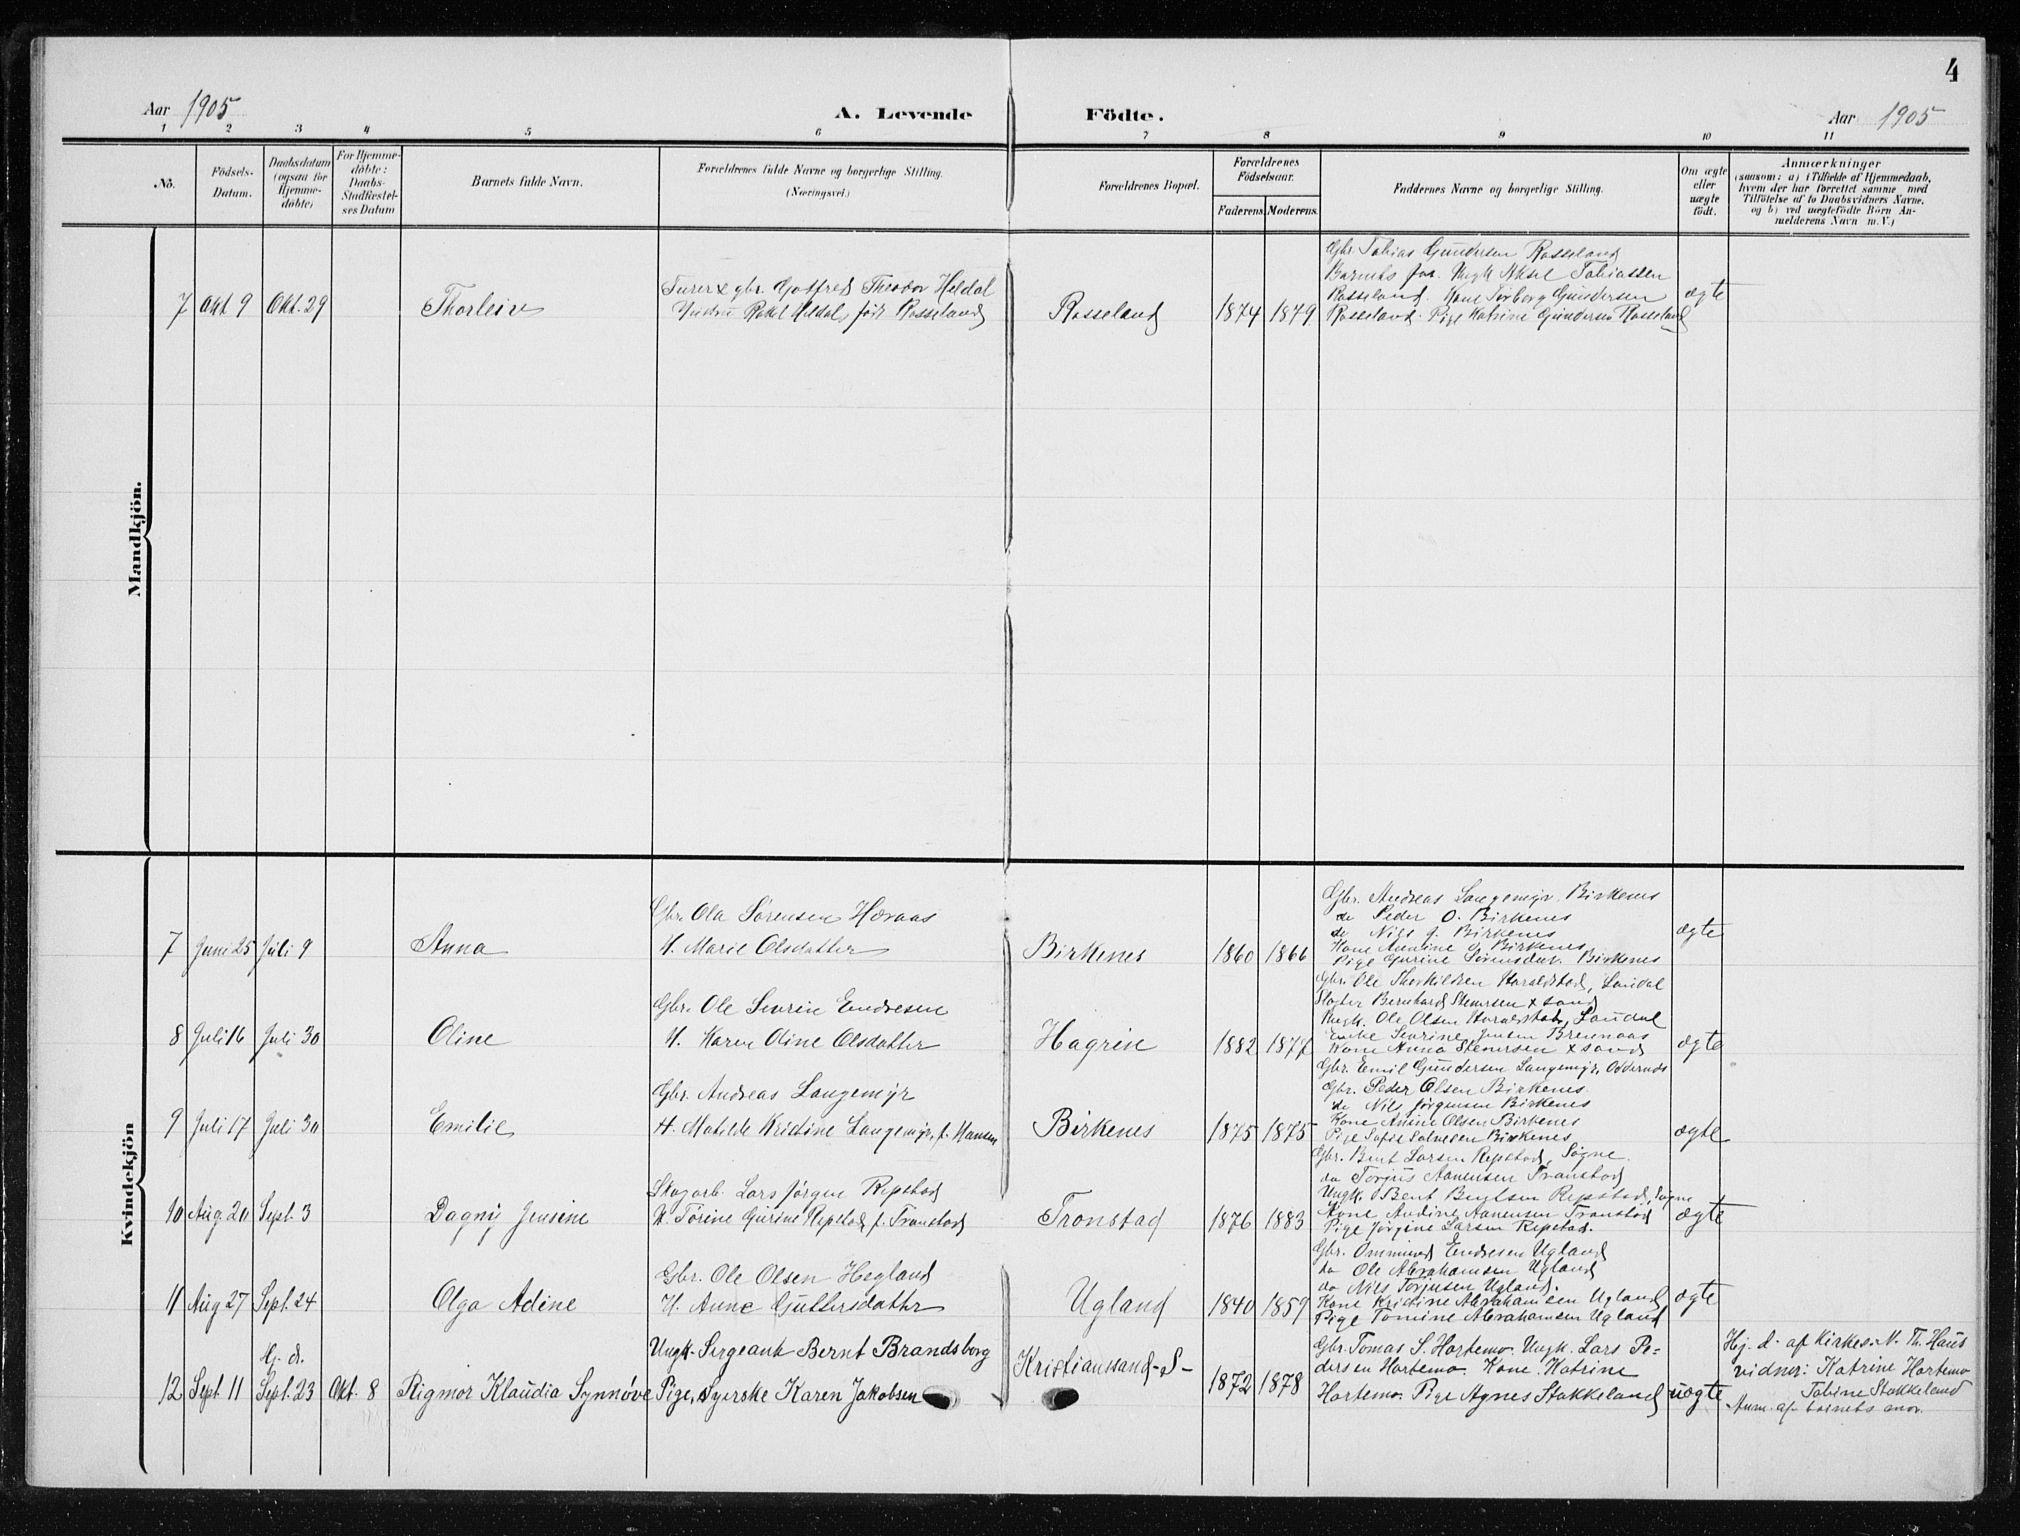 4
Aar 1905
A. Levende Födte.
Aar 1905
1 2 3 4 5 6 7 8 9 10 11
No.
Födsels-
Datum.
Daabsdatum
(ogsaa for
Hjemme-
döbte)
For Hjemme-
döbte:
Daabs-
Stadfæstel-
ses Datum
Barnets fulde Navn.
Forældrenes fulde Navne og borgerlige Stilling.
(Næringsvei.)
Forældrenes Bopæl.
Forældrenes
Födselsaar.
Faderens. Moderens.
Faddernes Navne og borgerlige Stilling.
Om ægte
eller
uægte
födt.
Anmærkninger
(saasom: a) i Tilfælde af Hjemmedaab,
hvem der har forrettet samme med
Tilföielse af to Daabsvidners Navne,
og b) ved uægtefödte Börn An-
melderens Navn m. V.)
Mandkjön.
7 Okt 9 Okt. 29
Thorleiv
gbr. Gotfred Theodor Heldal
Hustru Rakel Heldal, født Rosseland
Rosseland
1874 1879
Gbr. Tobias Gundersen Rosseland
Barnets far. Ungk Aksel Tobiassen
Rosseland. Kone Torborg Gundersen
Rosseland. Pige Katrine Gundersen Rosseland
ægte
Kvindekjön
7 Juni 25 Juli 9
Anna
Gbr. Ola Sørensen Høraas
H. Marie Olsdatter
Birkenes
1860 1866
Gbr. Andreas Langemyr Birkenes
do Peder O. Birkenes
do Nils J. Birkenes
Kone Annine O. Birkenes
Pige Gurine Sørensdat. Birkenes
ægte
8 Juli 16 Juli 30
Oline
Gbr. Ole Severin Endresen
H. Karen Oline Olsdatter
Hagrin
1882 1877
Gbr. Ole Thorkildsen Haraldstad, Laudal
Bernhard Stenersen x sand
Ungk. Ole Olsen Haraldstad, Laudal
Enke Severine Jensen Brennaas
Kone Anna Stenersen x sand
ægte
9 Juli 17 Juli 30
Emilie
Gbr. Andreas Langemyr
H. Matilde Kristine Langemyr, f. Hansen
Birkenes
1875 1875
Gbr. Emil Gundersen Langemyr, Oddernes
Gbr. Peder Olsen Birkenes
do Nils Jørgensen Birkenes
Kone Anine Olsen Birkenes
Pige Sofie Salvesen Birkenes
ægte
10 Aug. 20 Sept. 3
Dagny Jensine
Skogarb. Lars Jørgen Repstad
H. Torine Gurine Repstad f. Tronstad
Tronstad
1876 1883
Gbr. Bent Larsen Repstad, Søgne
do Torjus Aanensen Tronstad
Ungk. Bent Bentsen Repstad, Søgne
Kone Andine Aanensen Tronstad
Pige Jørgine Larsen Repstad.
ægte
11 Aug 27 Sept. 24
Olga Adine
Gbr. Ole Olsen Hegland
H. Anne Guttersdatter
Ugland
1840 1859
Gbr. Ommund Endresen Ugland
do Ole Abrahamsen Ugland
do Nils Torjusen Ugland.
Kone Kristine Abrahamsen Ugland
Pige Tomine Abrahamsen Ugland
ægte
12 Sept. 11
Hj. d.
Sept. 23 Okt. 8
Rigmor Klaudia Synnøve
Ungk. Sergeant Bernt Brandsborg
Pige, Syerske Karen Jakobsen
Kristianssand-S-
1872 1878
Gbr. Tomas S. Hortemo. Ungk. Lars Pe-
dersen Hortemo. Kone Katrine
Hortemo. Pige Agnes Stokkeland
uægte
Hj. d. af Kirkes. N. Th. Haus
vidner: Katrine Hortemo
Tobine Stokkeland
Anm. af barnets mor.